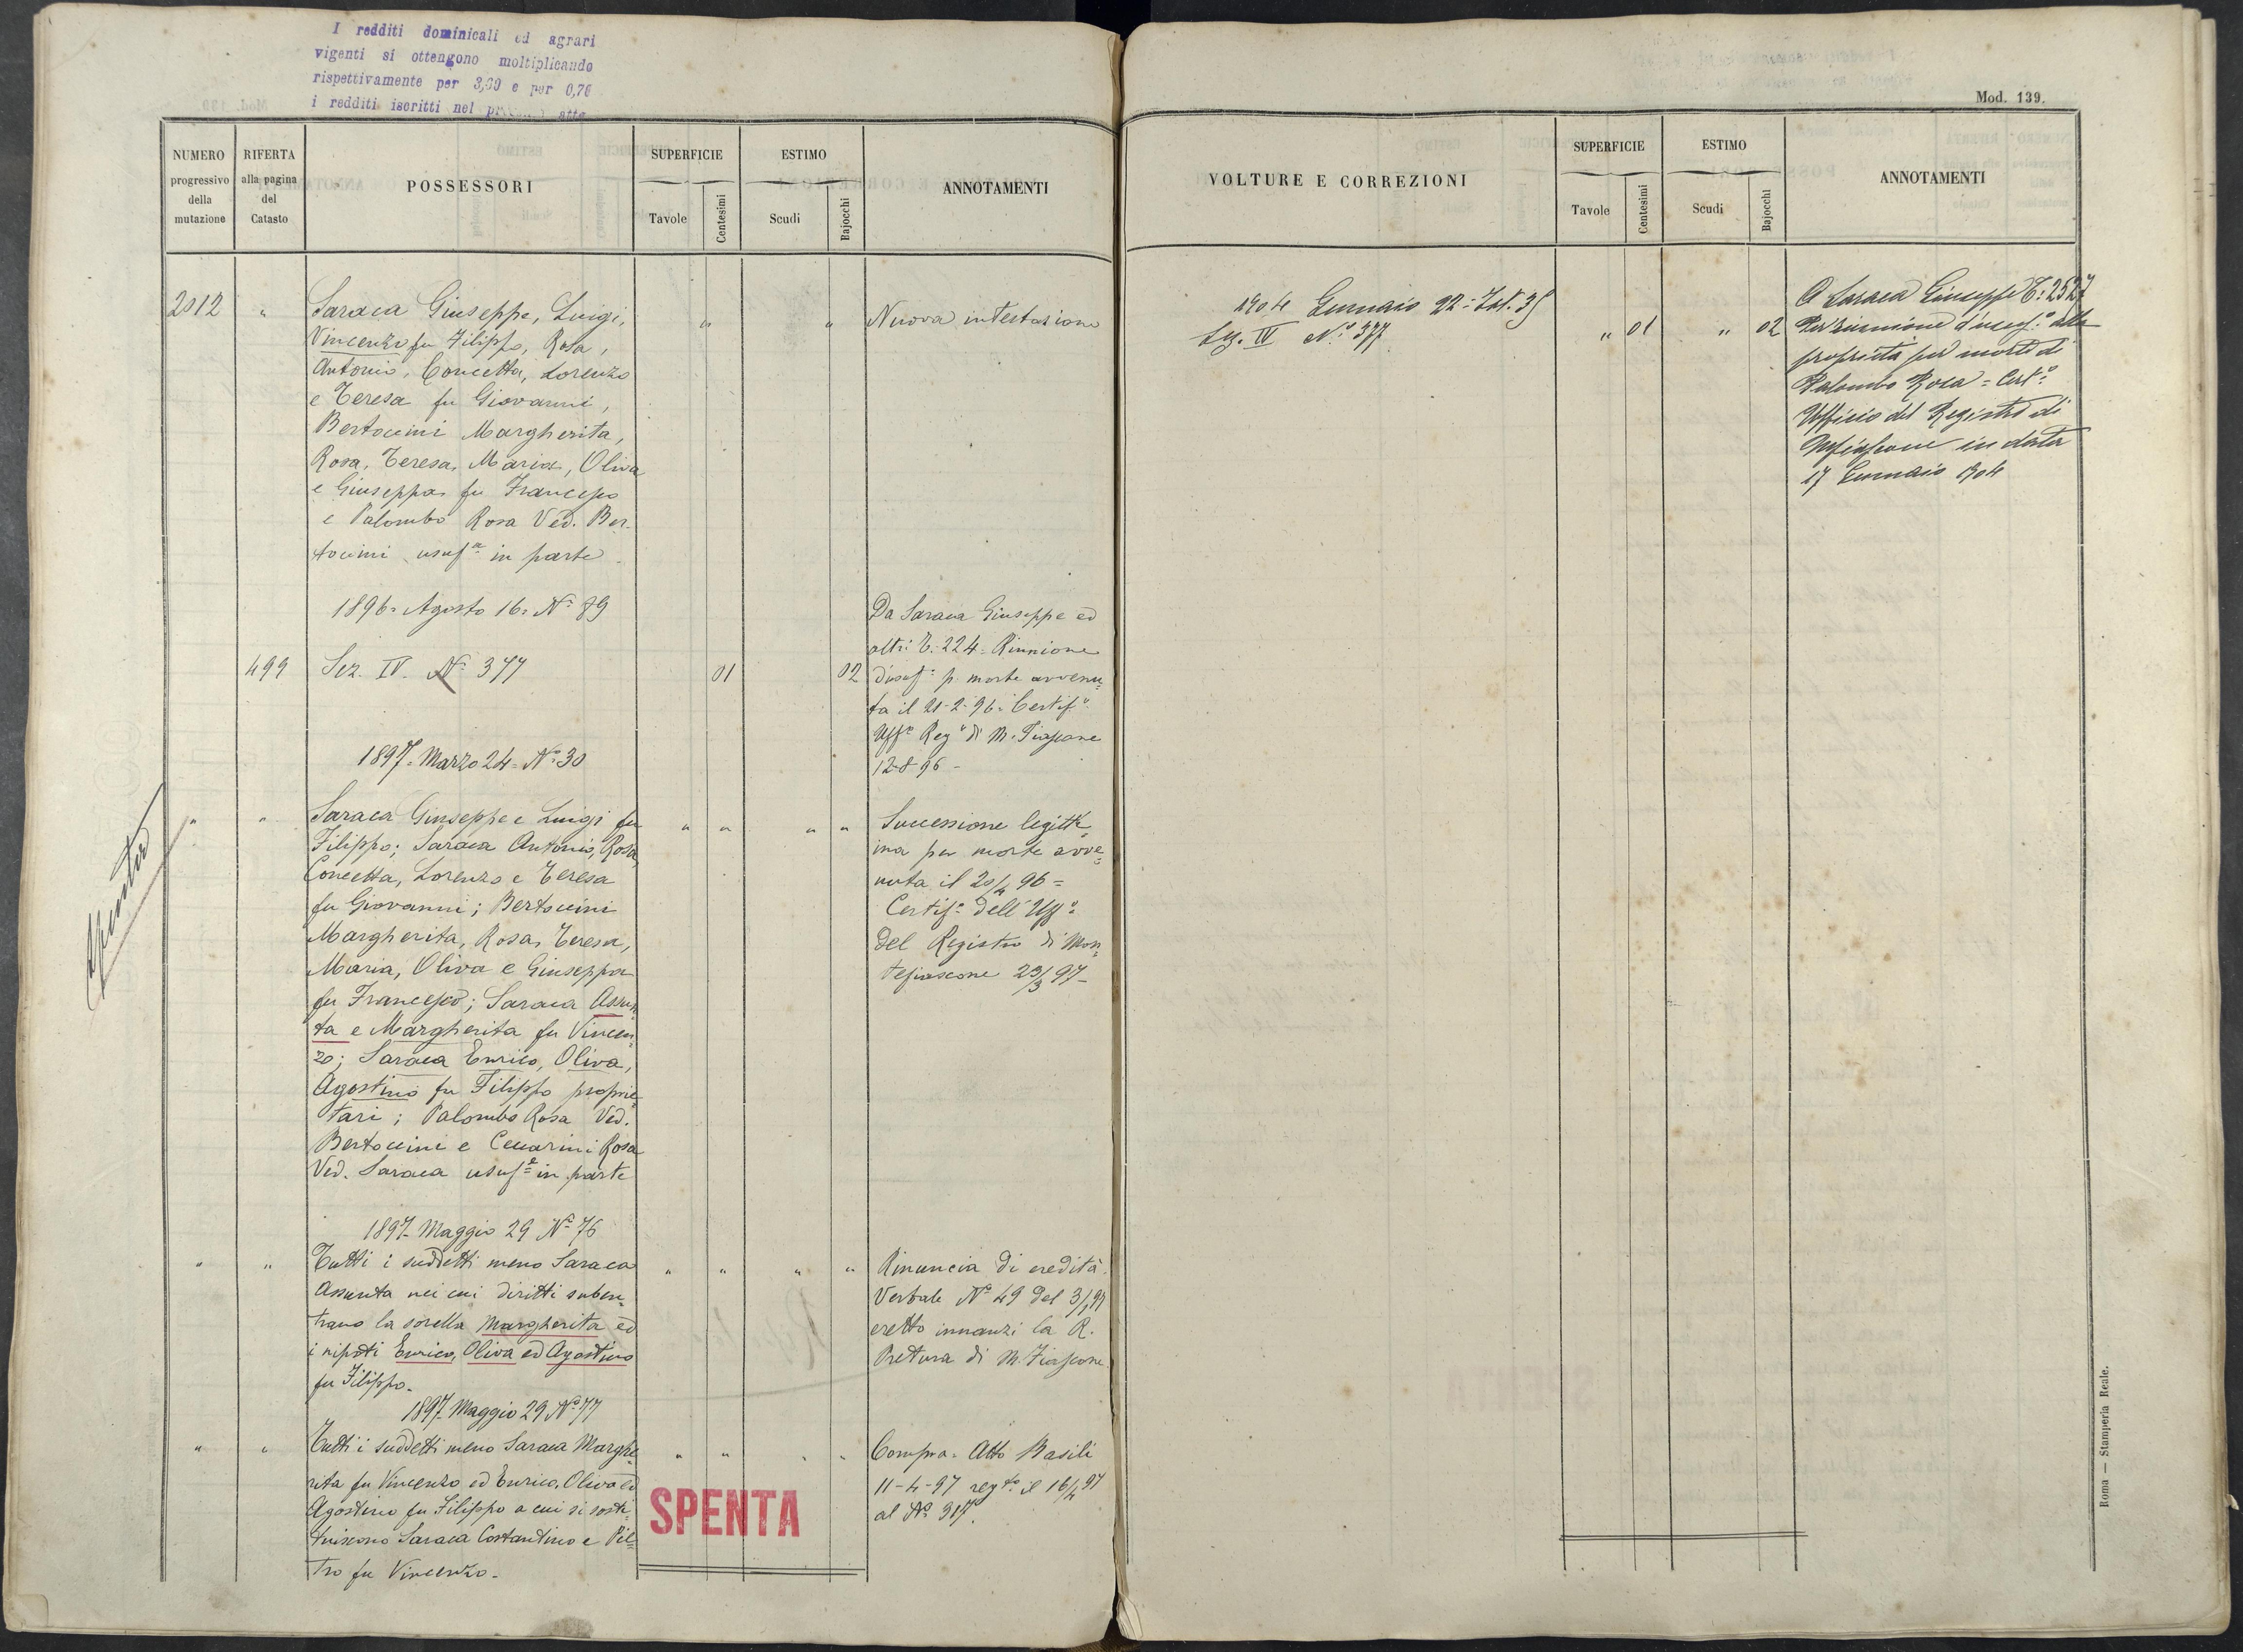 I redditi dominicali ed agrari
vigenti si ottengono moltiplicando
rispettivamente per 3,60 e per 0,76
i redditi iscritti nel presente atto
NUMERO
progressivo
della
mutazione
RIFERTA
alla pagina
del
Catasto
POSSESSORI
SUPERFICIE
Tavole
Centesimi
ESTIMO
Scudi
Bajocchi
ANNOTAMENTI
2012 " Saraca Giuseppe, Luigi, " " Nuova intestazione
Vincenzo fu Filippo, Rosa,
Antonio, Concetta, Lorenzo
e Teresa fu Giovanni,
Bertoccini Margherita,
Rosa, Teresa, Maria, Oliva
e Giuseppa fu Francesco
e Palombo Rosa Ved. Ber-
toccini usufª in parte
1896 = Agosto 16 = Nº 89
Da Saraca Giuseppe ed
altri T. 224 = Riunione
499 Sez. IV. Nº 377 01 02 d'usufº p. morte avvenu=
ta il 21-2-96 = Certifº
Uffº Regº di M. Fiascone
12-8-96 -
1897 = Marzo 24 = Nº 30
" " Saraca Giuseppe e Luigi fu " " " " Successione legitti=
Filippo; Saraca Antonio, Rosa, ma per morte avve=
Concetta, Lorenzo e Teresa nuta il 20/4 96 =
fu Giovanni; Bertoccini Certifº dell'Uffº
Margherita, Rosa, Teresa, del Registro di Mon=
Maria, Oliva e Giuseppa tefiascone 23/3 97 -
fu Francesco; Saraca Assun
ta e Margherita fu Vincen=
zo; Saraca Enrico, Oliva,
Agostino fu Filippo proprie=
tari; Palombo Rosa Ved.
Bertoccini e Ceccarini Rosa
Ved. Saraca usufᵉ in parte
Spenta
1897 = Maggio 29 Nº 76
" " Tutti i suddetti meno Saraca " " " " Rinuncia di eredità.
Assunta nei cui diritti suben= Verbale Nº 49 del
trano la sorella Margherita ed eretto innanzi la R.
i nipoti Enrico, Oliva ed Agostino Pretura di M. Fiascone
fu Filippo.
1897 = Maggio 29 Nº 77
" " Tutti i suddetti meno Saraca Marghe= " " " " Compra = Atto Basili
rita fu Vincenzo ed Enrico, Oliva ed 11-4-97 regto il 16/4 97
Agostino fu Filippo a cui si sosti= al Nº 317.
tuiscono Saraca Costantino e Pie=
tro fu Vincenzo.
SPENTA
Mod. 139.
VOLTURE E CORREZIONI
SUPERFICIE
Tavole
Centesimi
ESTIMO
Scudi
Bajocchi
ANNOTAMENTI
1904 Gennaio 22 = A Saraca Giuseppe T: 2527
Sez. IV Nº 377 " 01 " 02 Per riunione d'usufº alla
proprietà per morte di
Palombo Rosa = Certº
Ufficio del Registro di
Mtefiascone in data
17 Gennaio 1904
Roma — Stamperia Reale.